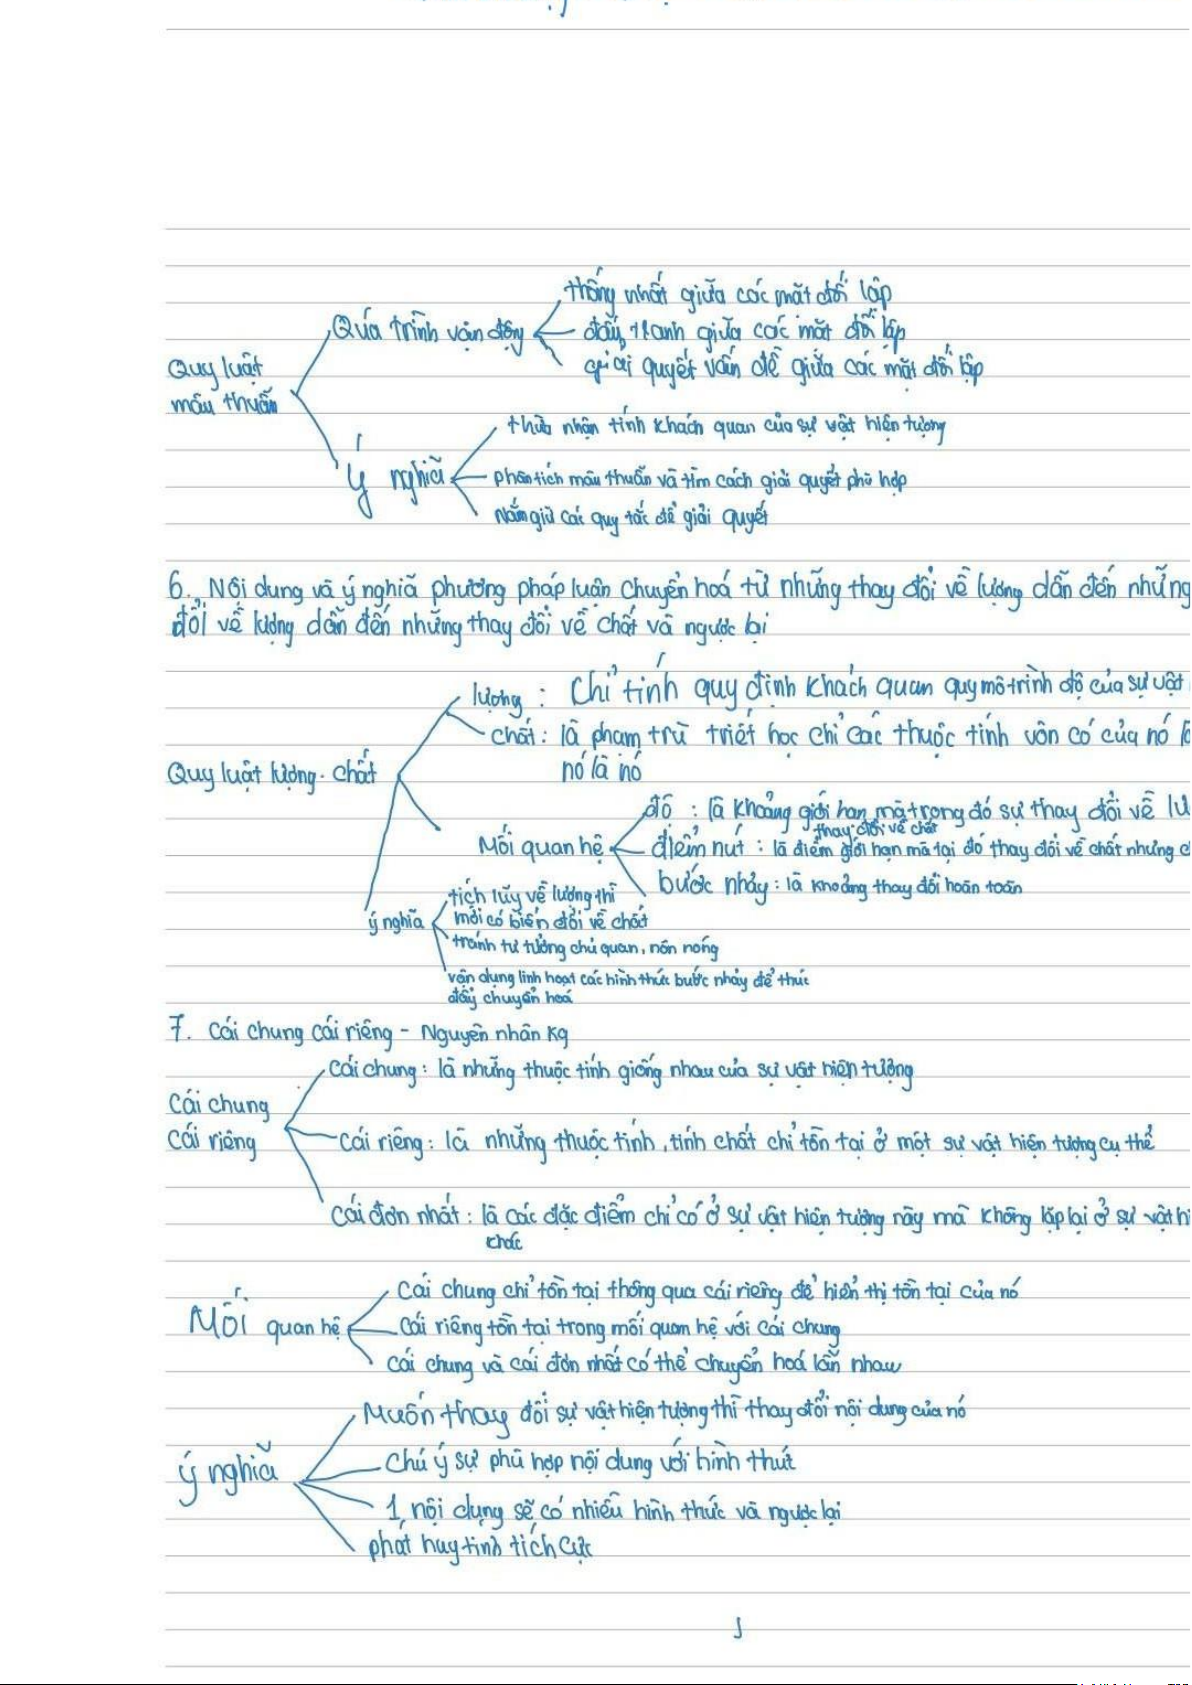 thống nhất giữa các mặt đối lập
Quá trình vận động
đấu tranh giữa các mặt đối lập
giải quyết vấn đề giữa các mặt đối lập
Quy luật
mâu thuẫn
thừa nhận tính khách quan của sự vật hiện tượng
Ý nghĩa
phân tích mâu thuẫn và tìm cách giải quyết phù hợp
Nắm giữ các quy tắc để giải quyết
6. Nội dung và ý nghĩa phương pháp luận chuyển hoá từ những thay đổi về lượng dẫn đến những
đổi về lượng dẫn đến những thay đổi về chất và ngược lại
lượng : Chỉ tính quy định khách quan quy mô trình độ của sự vật
chất : là phạm trù triết học chỉ các thuộc tính vốn có của nó
nó là nó
Quy luật lượng - chất
độ : là khoảng giới hạn mà trong đó sự thay đổi về
thay đổi về chất
Mối quan hệ
điểm nút : là điểm giới hạn mà tại đó thay đổi về chất nhưng
bước nhảy : là khoảng thay đổi hoàn toàn
tích lũy về lượng thì
mới có biến đổi về chất
ý nghĩa
tránh tư tưởng chủ quan, nôn nóng
vận dụng linh hoạt các hình thức bước nhảy để thúc
đẩy chuyển hoá
7. Cái chung cái riêng - Nguyên nhân kq
Cái chung : là những thuộc tính giống nhau của sự vật hiện tượng
Cái chung
Cái riêng
Cái riêng : là những thuộc tính, tính chất chỉ tồn tại ở một sự vật hiện tượng cụ thể
Cái đơn nhất : là các đặc điểm chỉ có ở sự vật hiện tượng này mà không lặp lại ở sự vật
khác
Cái chung chỉ tồn tại thông qua cái riêng để hiển thị tồn tại của nó
Mối quan hệ
Cái riêng tồn tại trong mối quan hệ với cái chung
Cái chung và cái đơn nhất có thể chuyển hoá lẫn nhau
Muốn thay đổi sự vật hiện tượng thì thay đổi nội dung của nó
ý nghĩa
Chú ý sự phù hợp nội dung với hình thức
1 nội dung sẽ có nhiều hình thức và ngược lại
phát huy tính tích cực